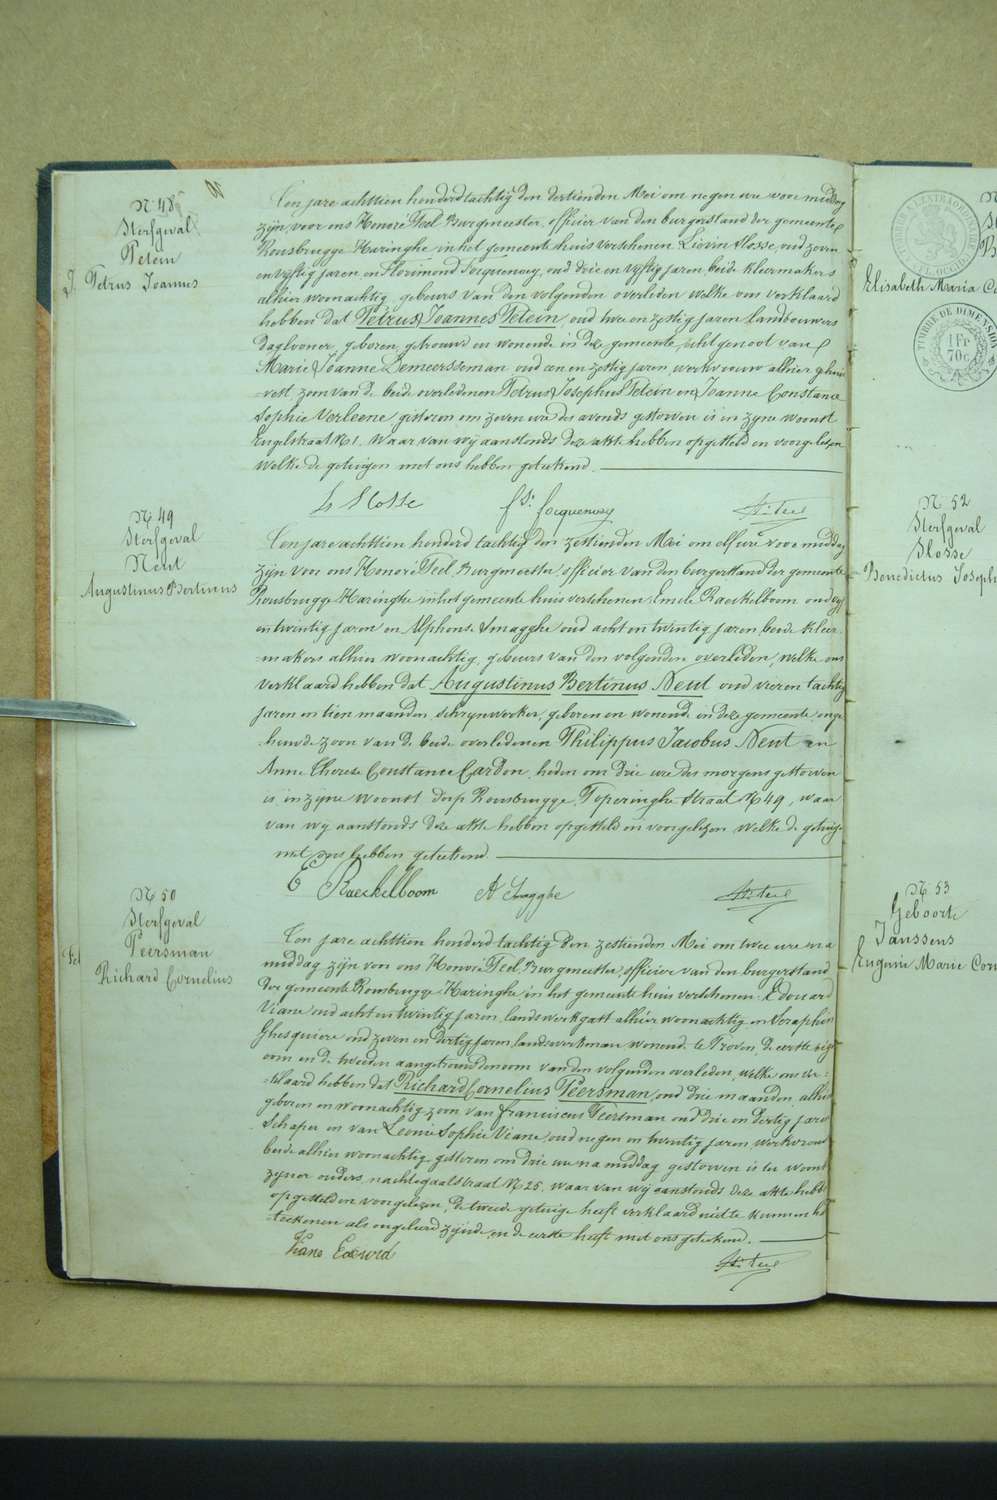 N 48
Sterfgeval
Petein
Petrus Joannes
Ten jare achttien honderd tachtig den dertienden Mei om negen ure voor middag
zijn voor ons Honoré Teel Burgmeester, officier van den burgerstand der gemeente
Rousbrugge Haringhe in het gemeente huis verschenen Livin Slosse, oud zeven
en vyftig jaren en Florimond Focquenoey, oud drie en vyftig jaren beide kleermakers
alhier woonachtig, gebeurs van den volgenden overleden welke ons verklaard
hebben dat Petrus Joannes Petein, oud twee en zestig jaren Landbouwers
daglooner, geboren, getrouwd en wonende in deze gemeente, echtgenoot van
Marie Joanne Demeersseman oud een en zestig jaren, werkvrouw alhier gehuis
vest, zoon van de beide overledenen Petrus Josephus Petein en Joanne Constance
Sophie Verleene, gisteren om zeven ure des avonds gestorven is in zyne woonst
Engelstraat N 1. Waar van wij aanstonds deze akte hebben opgesteld en voorgelezen
welke de getuigen met ons hebben geteekend.
L Slosse Fs. Focquenoey H. Teel
N 49
Sterfgeval
Neut
Augustinus Bertinus
Ten jare achttien honderd tachtig den zestienden Mei om elf ure voor middag
zijn voor ons Honoré Teel Burgmeester, officier van den burgerstand der gemeente
Rousbrugge Haringhe in het gemeente huis verschenen Emile Raeckelboom oud vyf
en twintig jaren en Alphonse Smagghe oud acht en twintig jaren, beide kleer
makers alhier woonachtig, gebeurs van den volgenden overleden, welke ons
verklaard hebben dat Augustinus Bertinus Neut oud vier en tachtig
jaren en tien maanden schrynwerker, geboren en wonende in deze gemeente, onge
huwde zoon van de beide overledenen Philippus Jacobus Neut en
Anne Therese Constance Cardon, heden om drie ure des morgens gestorven
is in zyne woonst dorp Rousbrugge, Poperinghe straat N 49, waar
van wy aanstonds deze akte hebben opgesteld en voorgelezen welke de getuige
met ons hebben geteekend.
E Raeckelboom A Smagghe H. Teel
N 50
Sterfgeval
Peersman
Richard Cornelius
Ten jare achttien honderd tachtig den zestienden Mei om twee ure na
middag zijn voor ons Honoré Teel, Burgmeester, officier van den burgerstand
der gemeente Rousbrugge Haringhe in het gemeente huis verschenen Edouard
Viane oud acht en twintig jaren, landswerkgast alhier woonachtig en Seraphin
Ghesquiere oud zeven en dertig jaren, landswerkman wonende te Proven, de eerste eige
oom en de tweeden aangetrouwden oom van den volgenden overleden, welke ons ver
klaard hebben dat Richard Cornelius Peersman, oud drie maanden, alhier
geboren en woonachtig, zoon van Franciscus Peersman oud drie en dertig jaren
Schaper en van Leonie Sophie Viane, oud negen en twintig jaren, werkvrouw
beide alhier woonachtig, gisteren om drie ure na middag gestorven is ter woonst
zijner ouders, nachtegaalstraat N 25. waar van wij aanstonds deze akte hebben
opgesteld en voorgelezen, de tweede getuige heeft verklaard niet te kunnen
teekenen als ongeleerd zijnde, en de eerste heeft met ons geteekend.
Viane Edeward H. Teel
Elisabeth Maria Co
TIMBRE DE DIMENSION
1 Fr
70c
N 52
Sterfgeval
Slosse
Benedictus Joseph
N 53
Geboorte
Janssens
Eugenie Marie Corn